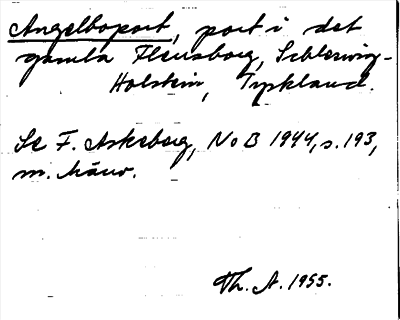 Angelboport, port i det
gamla Flensborg, Schleswig-
Holstein, Tyskland.
Se F. Askeberg, NoB 1944, s. 193,
m. hänv.
Th. A. 1955.